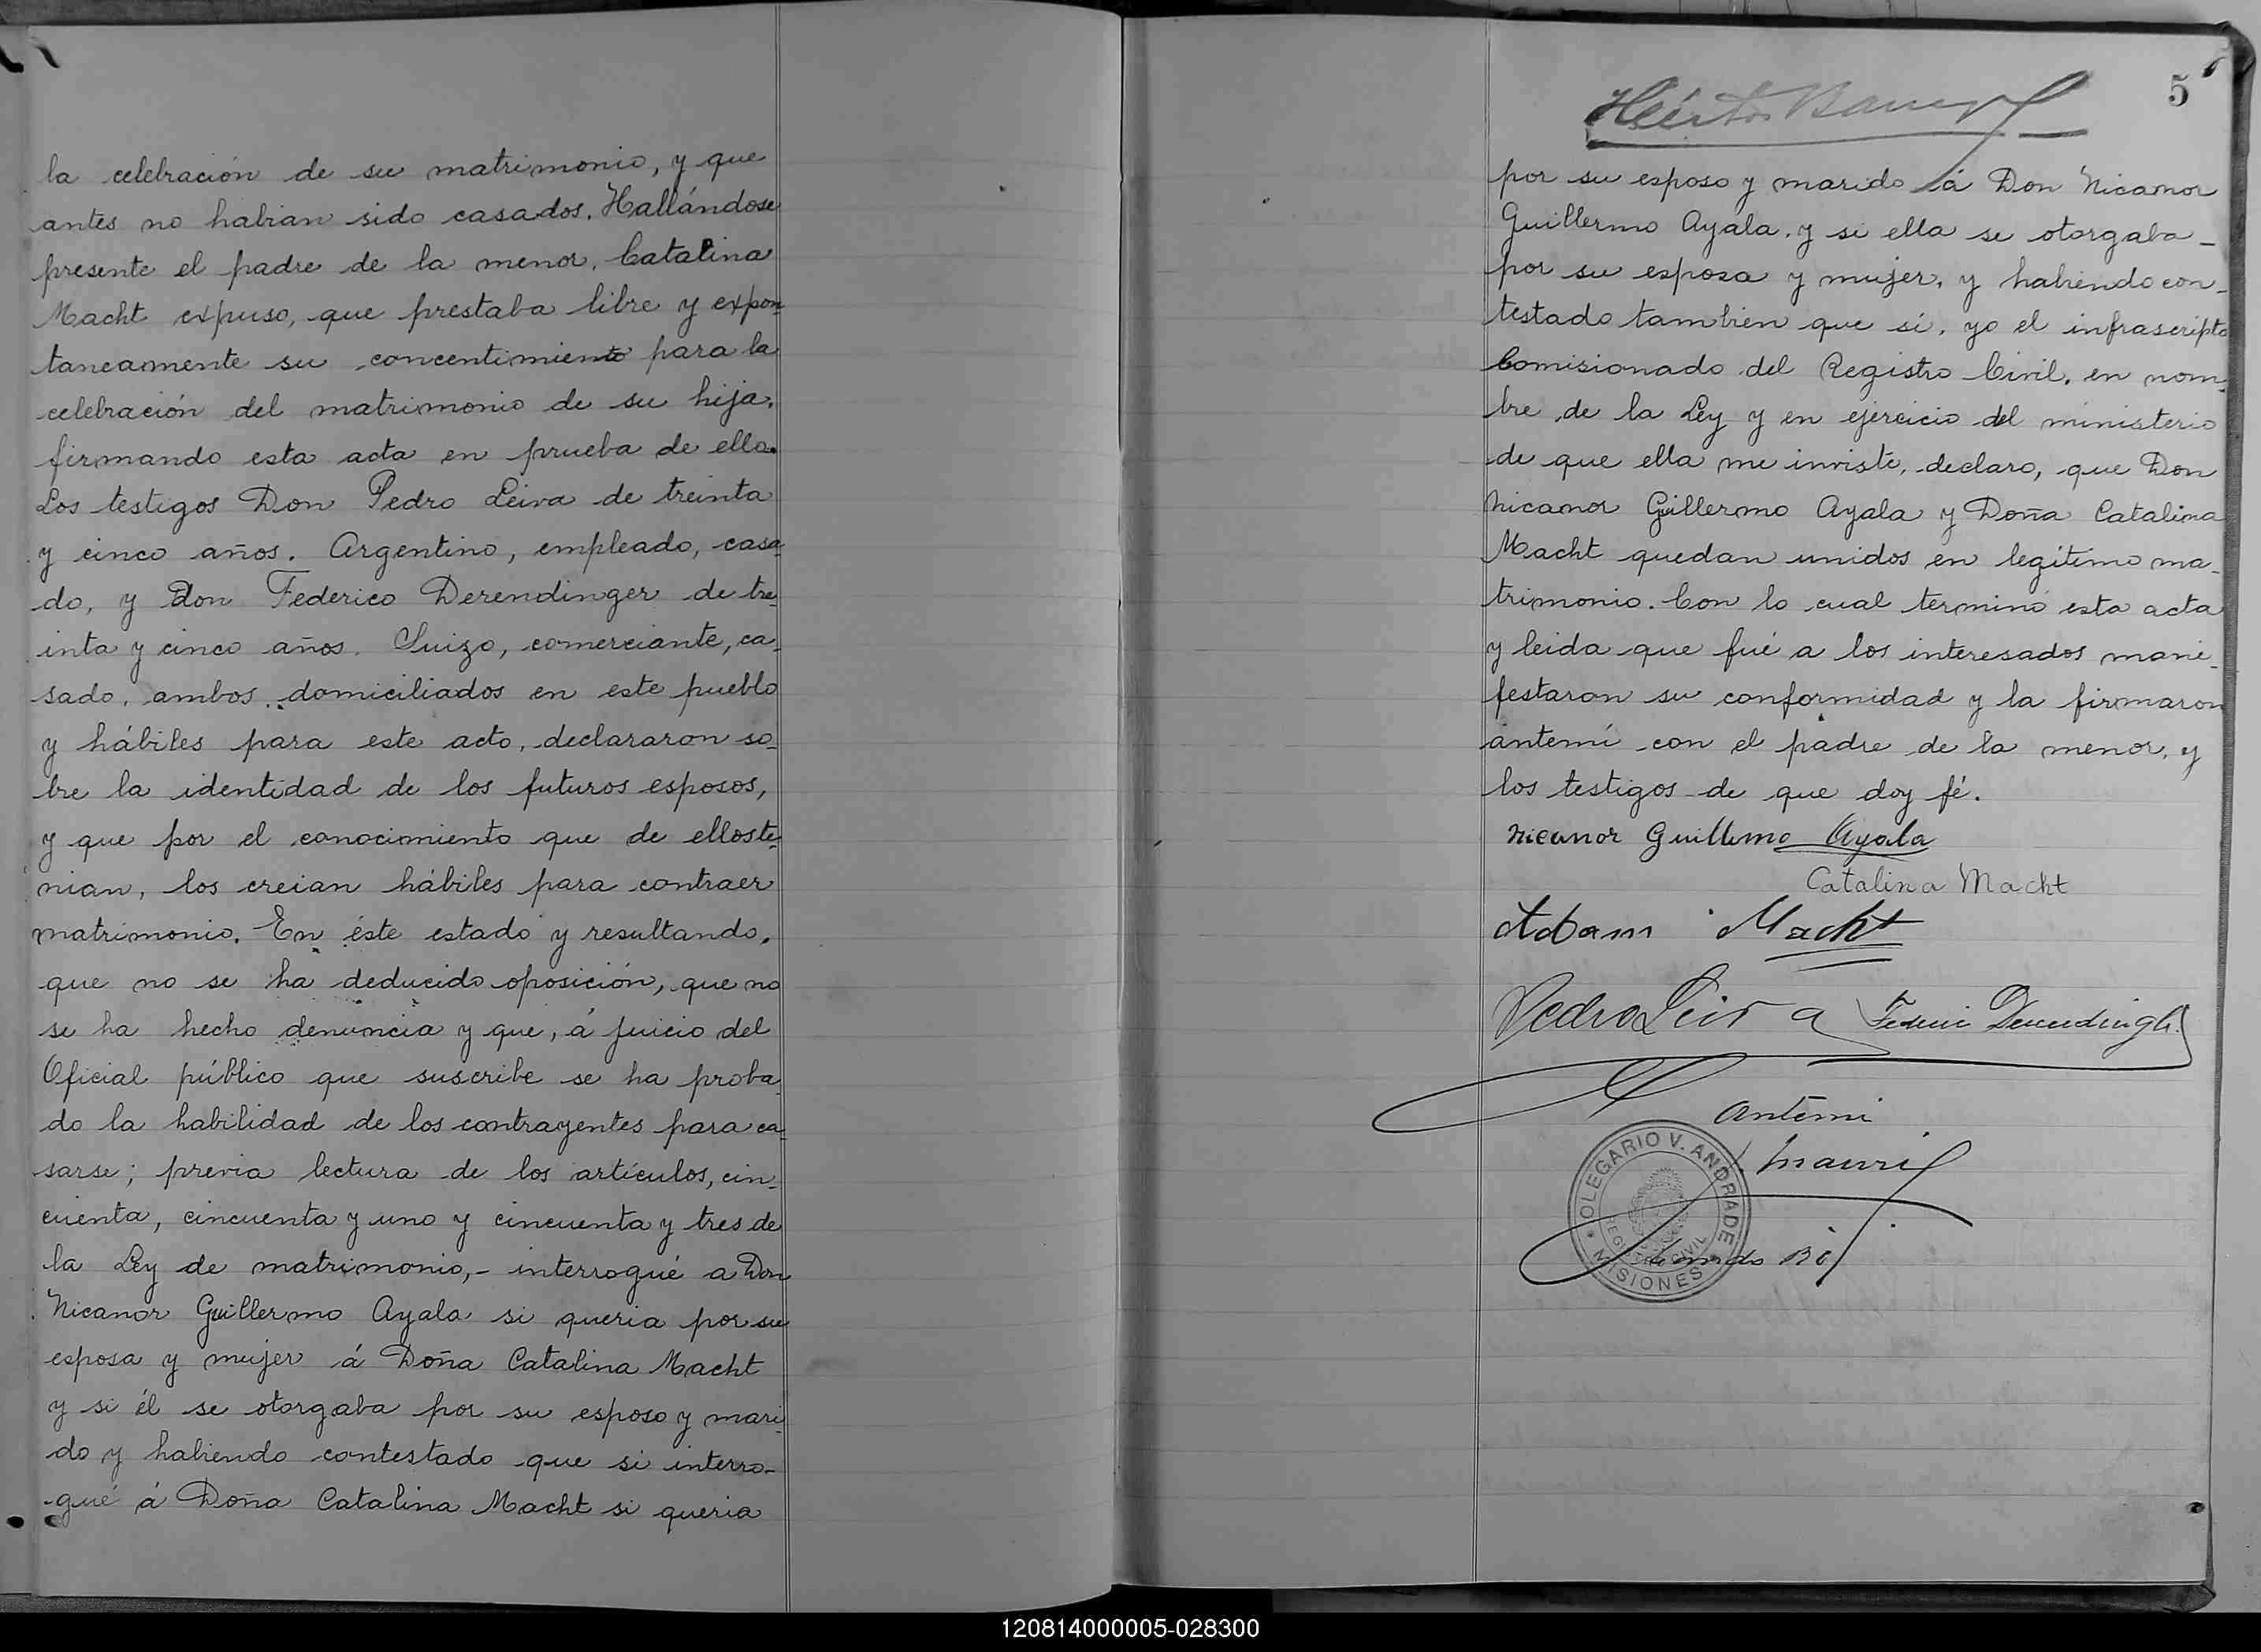 la celebración de su matrimonio, y que
antes no habian sido casados. Hallándose
presente el padre de la menor, Catalina
Macht expuso, que prestaba libre y expon-
taneamente su concentimiento para la
celebración del matrimonio de su hija,
firmando esta acta en prueba de ello.
Los testigos Don Pedro Leiva de treinta
y cinco años. Argentino, empleado, casa-
do, y Don Federico Derendinger de tre-
inta y cinco años. Suizo, comerciante, ca-
sado, ambos domiciliados en este pueblo
y hábiles para este acto, declararon so-
bre la identidad de los futuros esposos,
y que por el conocimiento que de ellos te-
nian, los creian hábiles para contraer
matrimonio. En éste estado y resultando,
que no se ha deducido oposición, que no
se ha hecho denuncia y que, á juicio del
Oficial público que suscribe se ha proba-
do la habilidad de los contrayentes para ca-
sarse; previa lectura de los artículos, cin-
cuenta, cincuenta y uno y cincuenta y tres de
la Ley de matrimonio,- interrogué a Don
Nicanor Guillermo Ayala si queria por su
esposa y mujer á Doña Catalina Macht
y si él se otorgaba por su esposo y mari-
do y habiendo contestado que si interro-
-gué á Doña Catalina Macht si queria
5
Héctor
por su esposo y marido á Don Nicanor
Guillermo Ayala, y si ella se otorgaba-
por su esposa y mujer, y habiendo con-
testado tambien que sí, yo el infrascripto
Comisionado del Registro Civil, en nom-
bre de la Ley y en ejercicio del ministerio
de que ella me inviste, declaro, que Don
Nicanor Guillermo Ayala y Doña Catalina
Macht quedan unidos en legítimo ma-
trimonio. Con lo cual terminó esta acta
y leida que fué a los interesados mani-
festaron su conformidad y la firmaron
antemí con el padre de la menor, y
los testigos de que doy fé.
Nicanor Guillermo Ayala
Catalina Macht
Adam Macht
Pedro Leiva
Antemi
OLEGARIO V. ANDRADE
REGISTRO CIVIL
* MISIONES *
120814000005-028300